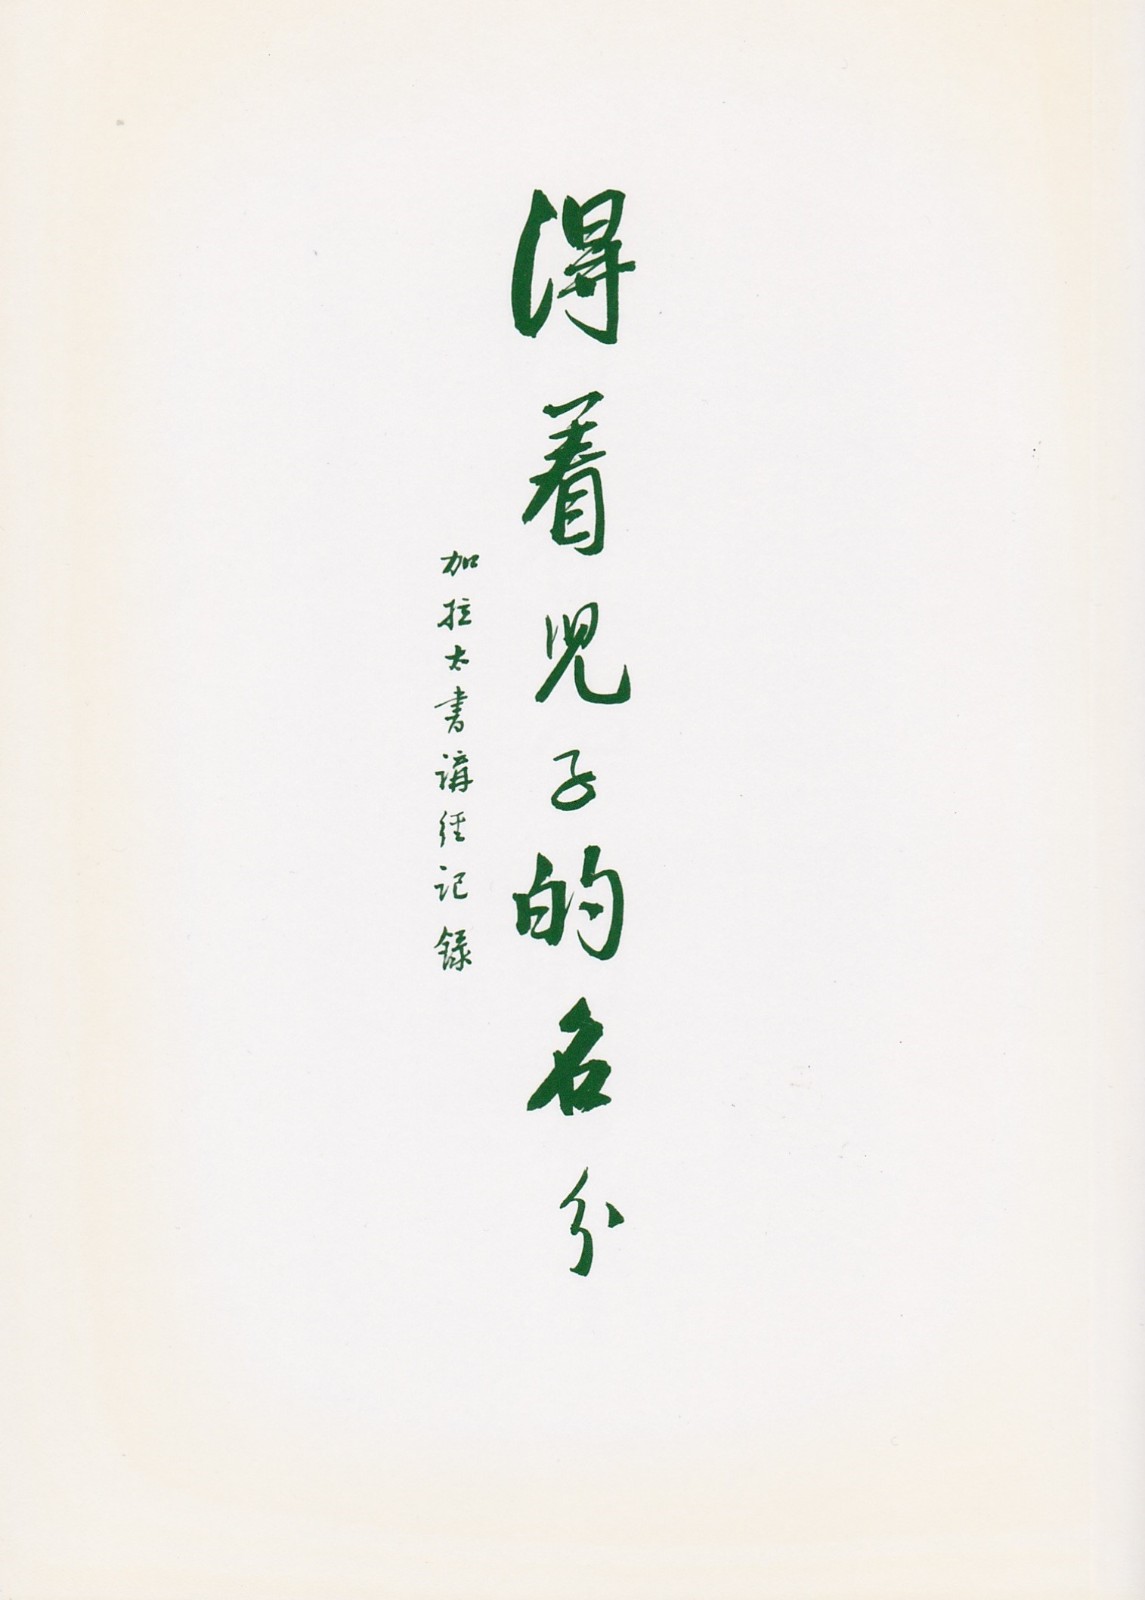 得着兒子的名分
加拉太書講經記錄